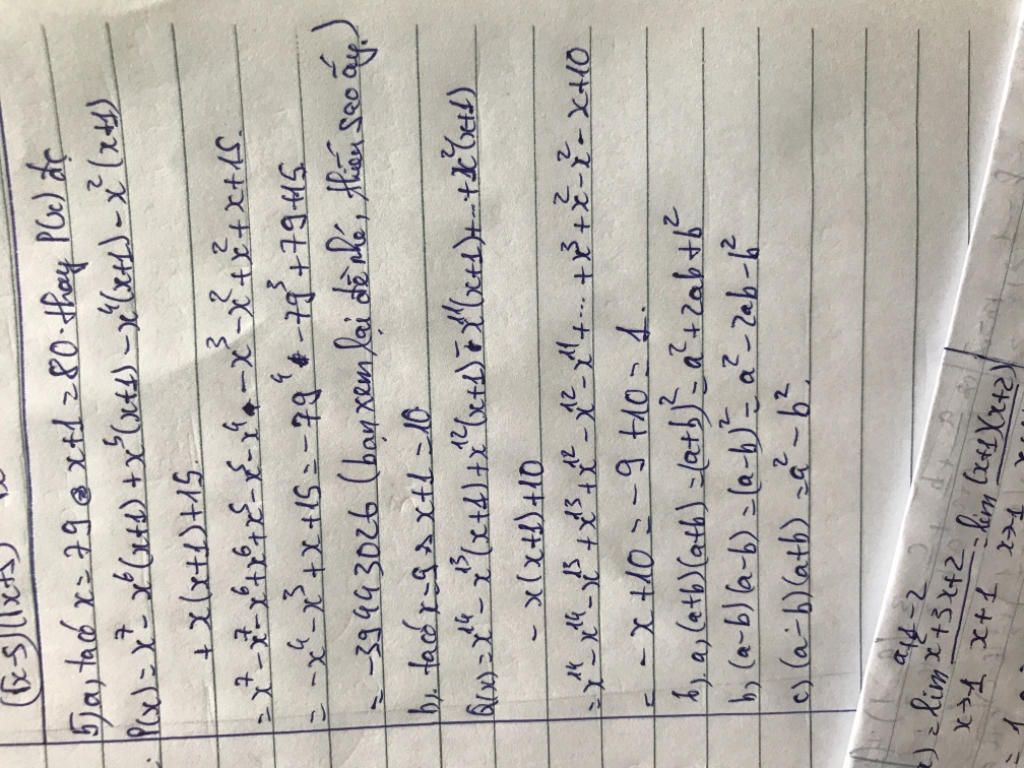 (1x+5)
5) a, ta có x = 79 => x+1 = 80. thay P(x) đc
P(x) = x⁷ - x⁶(x+1) + x⁵(x+1) - x⁴(x+1) - x²(x+1)
+ x(x+1) + 15
= x⁷ - x⁷ - x⁶ + x⁶ + x⁵ - x⁵ - x⁴ - x³ - x² + x² + x + 15.
= -x⁴ - x³ + x + 15 = -79⁴ - 79³ + 79 + 15
= -39443026 (bạn xem lại đề nhé, thiếu sao ấy.)
b, ta có x = 9 => x+1 = 10
Q(x) = x¹⁴ - x¹³(x+1) + x¹²(x+1) - x¹¹(x+1) + ... + x²(x+1)
- x(x+1) + 10
= x¹⁴ - x¹⁴ - x¹³ + x¹³ + x¹² - x¹² - x¹¹ + .... + x³ + x² - x² - x + 10
= -x + 10 = -9 + 10 = 1.
b, a, (a+b)(a+b) = (a+b)² = a² + 2ab + b²
b, (a-b)(a-b) = (a-b)² = a² - 2ab - b²
c) (a-b)(a+b) = a² - b².
) = lim x+3x+2 / x+1 = lim (x+1)(x+2)
x→-1 x→-1
= 1